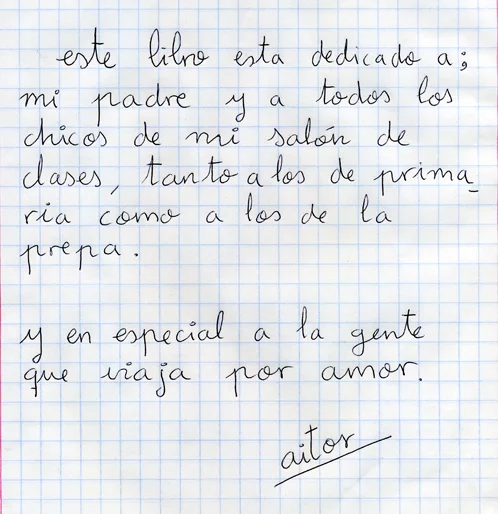 este libro esta dedicado a;
mi padre y a todos los
chicos de mi salón de
clases, tanto a los de prima_
ria como a los de la
prepa.
y en especial a la gente
que viaja por amor.
aitor